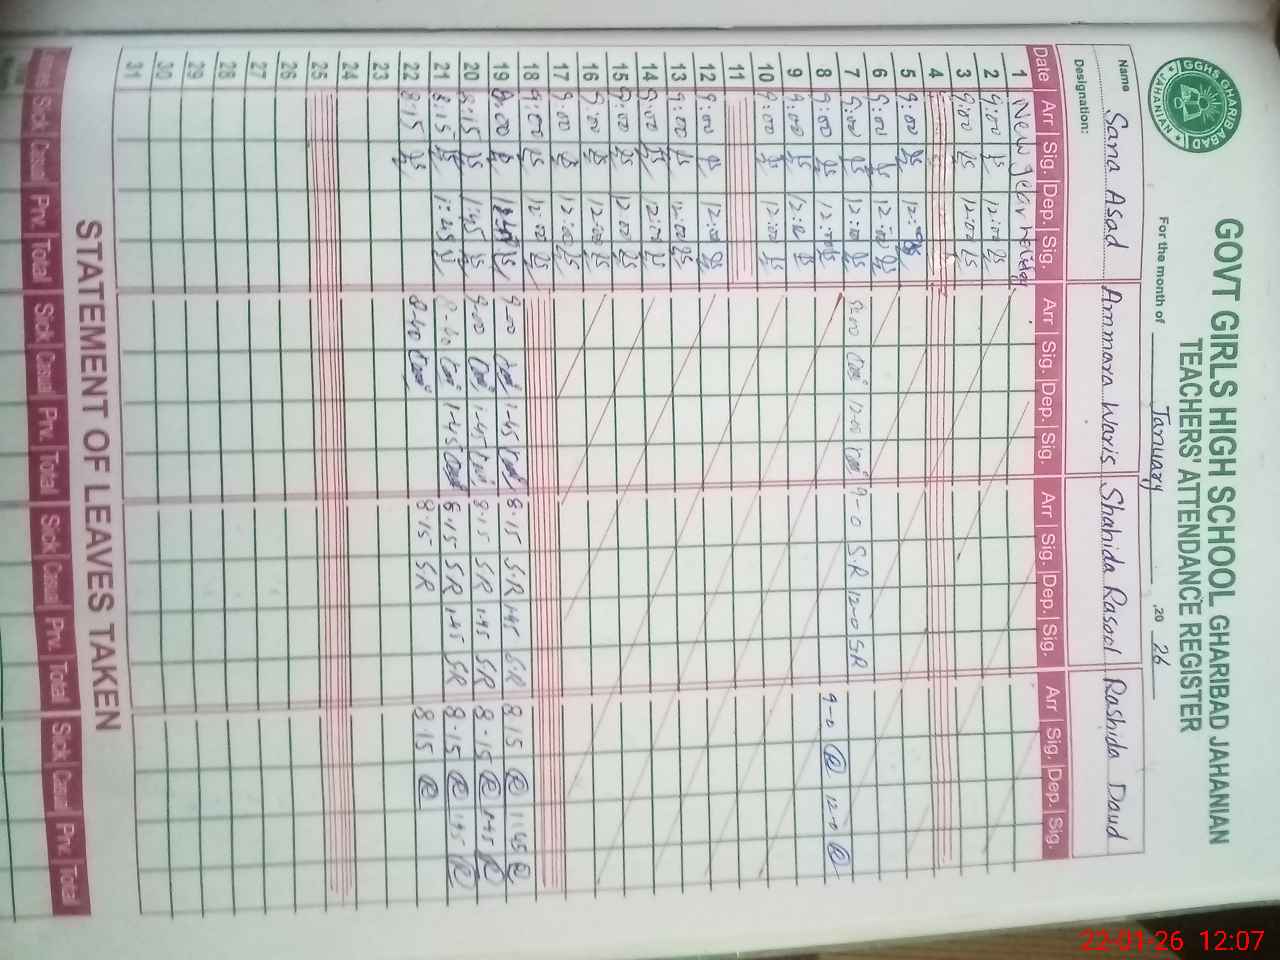 GGHS GHARIBABAD
JAHANIAN
GOVT GIRLS HIGH SCHOOL GHARIBAD JAHANIAN
TEACHERS' ATTENDANCE REGISTER
For the month of January 20 26
Name Sana Asad Ammara Waris Shahida Rasool Rashida Daud
Designation:
Date Arr Sig. Dep. Sig. Arr Sig. Dep. Sig. Arr Sig. Dep. Sig. Arr Sig. Dep. Sig.
1 New year holiday
2 9:00 12:00
3 9:00 12:00
4
5 9:00 12:00
6 9:00 12:00
7 9:00 12:00 9:00 12-00 9-0 S.R 12-0 SR
8 9:00 12:00 9-0 R 12-0 R
9 9:00 12:00
10 9:00 12:00
11
12 9:00 12:00
13 9:00 12:00
14 9:00 12:00
15 9:00 12:00
16 9:00 12:00
17 9:00 12:00
18 9:00 12:00
19 9:00 9-00 1-45 8.15 S.R 1.45 S.R 8.15 R 1.45 R
20 8:15 1:45 9-00 1-45 8.15 S.R 1.45 S.R 8.15 R 1.45 R
21 8:15 1:45 8-40 1-45 8.15 S.R 1.45 S.R 8.15 R 1.45 R
22 8:15 8-40 8.15 S.R 8.15 R
23
24
25
26
27
28
29
30
31
STATEMENT OF LEAVES TAKEN
Sick Casual Prv. Total Sick Casual Prv. Total Sick Casual Prv. Total Sick Casual Prv. Total
22-01-26 12:07